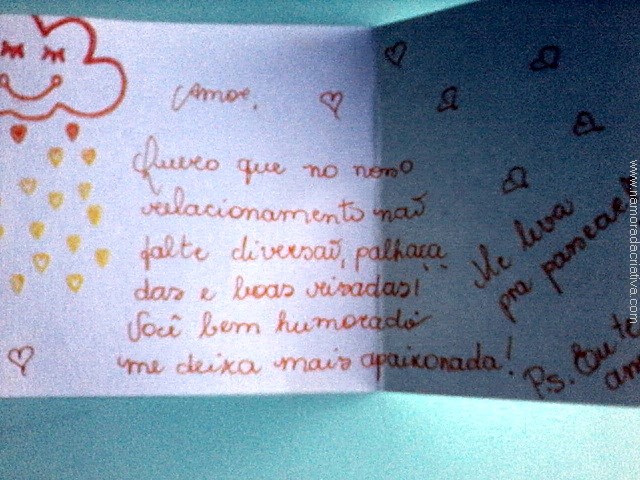 Amor,
Quero que no nosso
relacionamento não
falte diversão, palhaça
das e boas risadas!
Você bem humorado
me deixa mais apaixonada!
Me leva
pra passear
P.s. Eu te
am
www.namoradacriativa.com